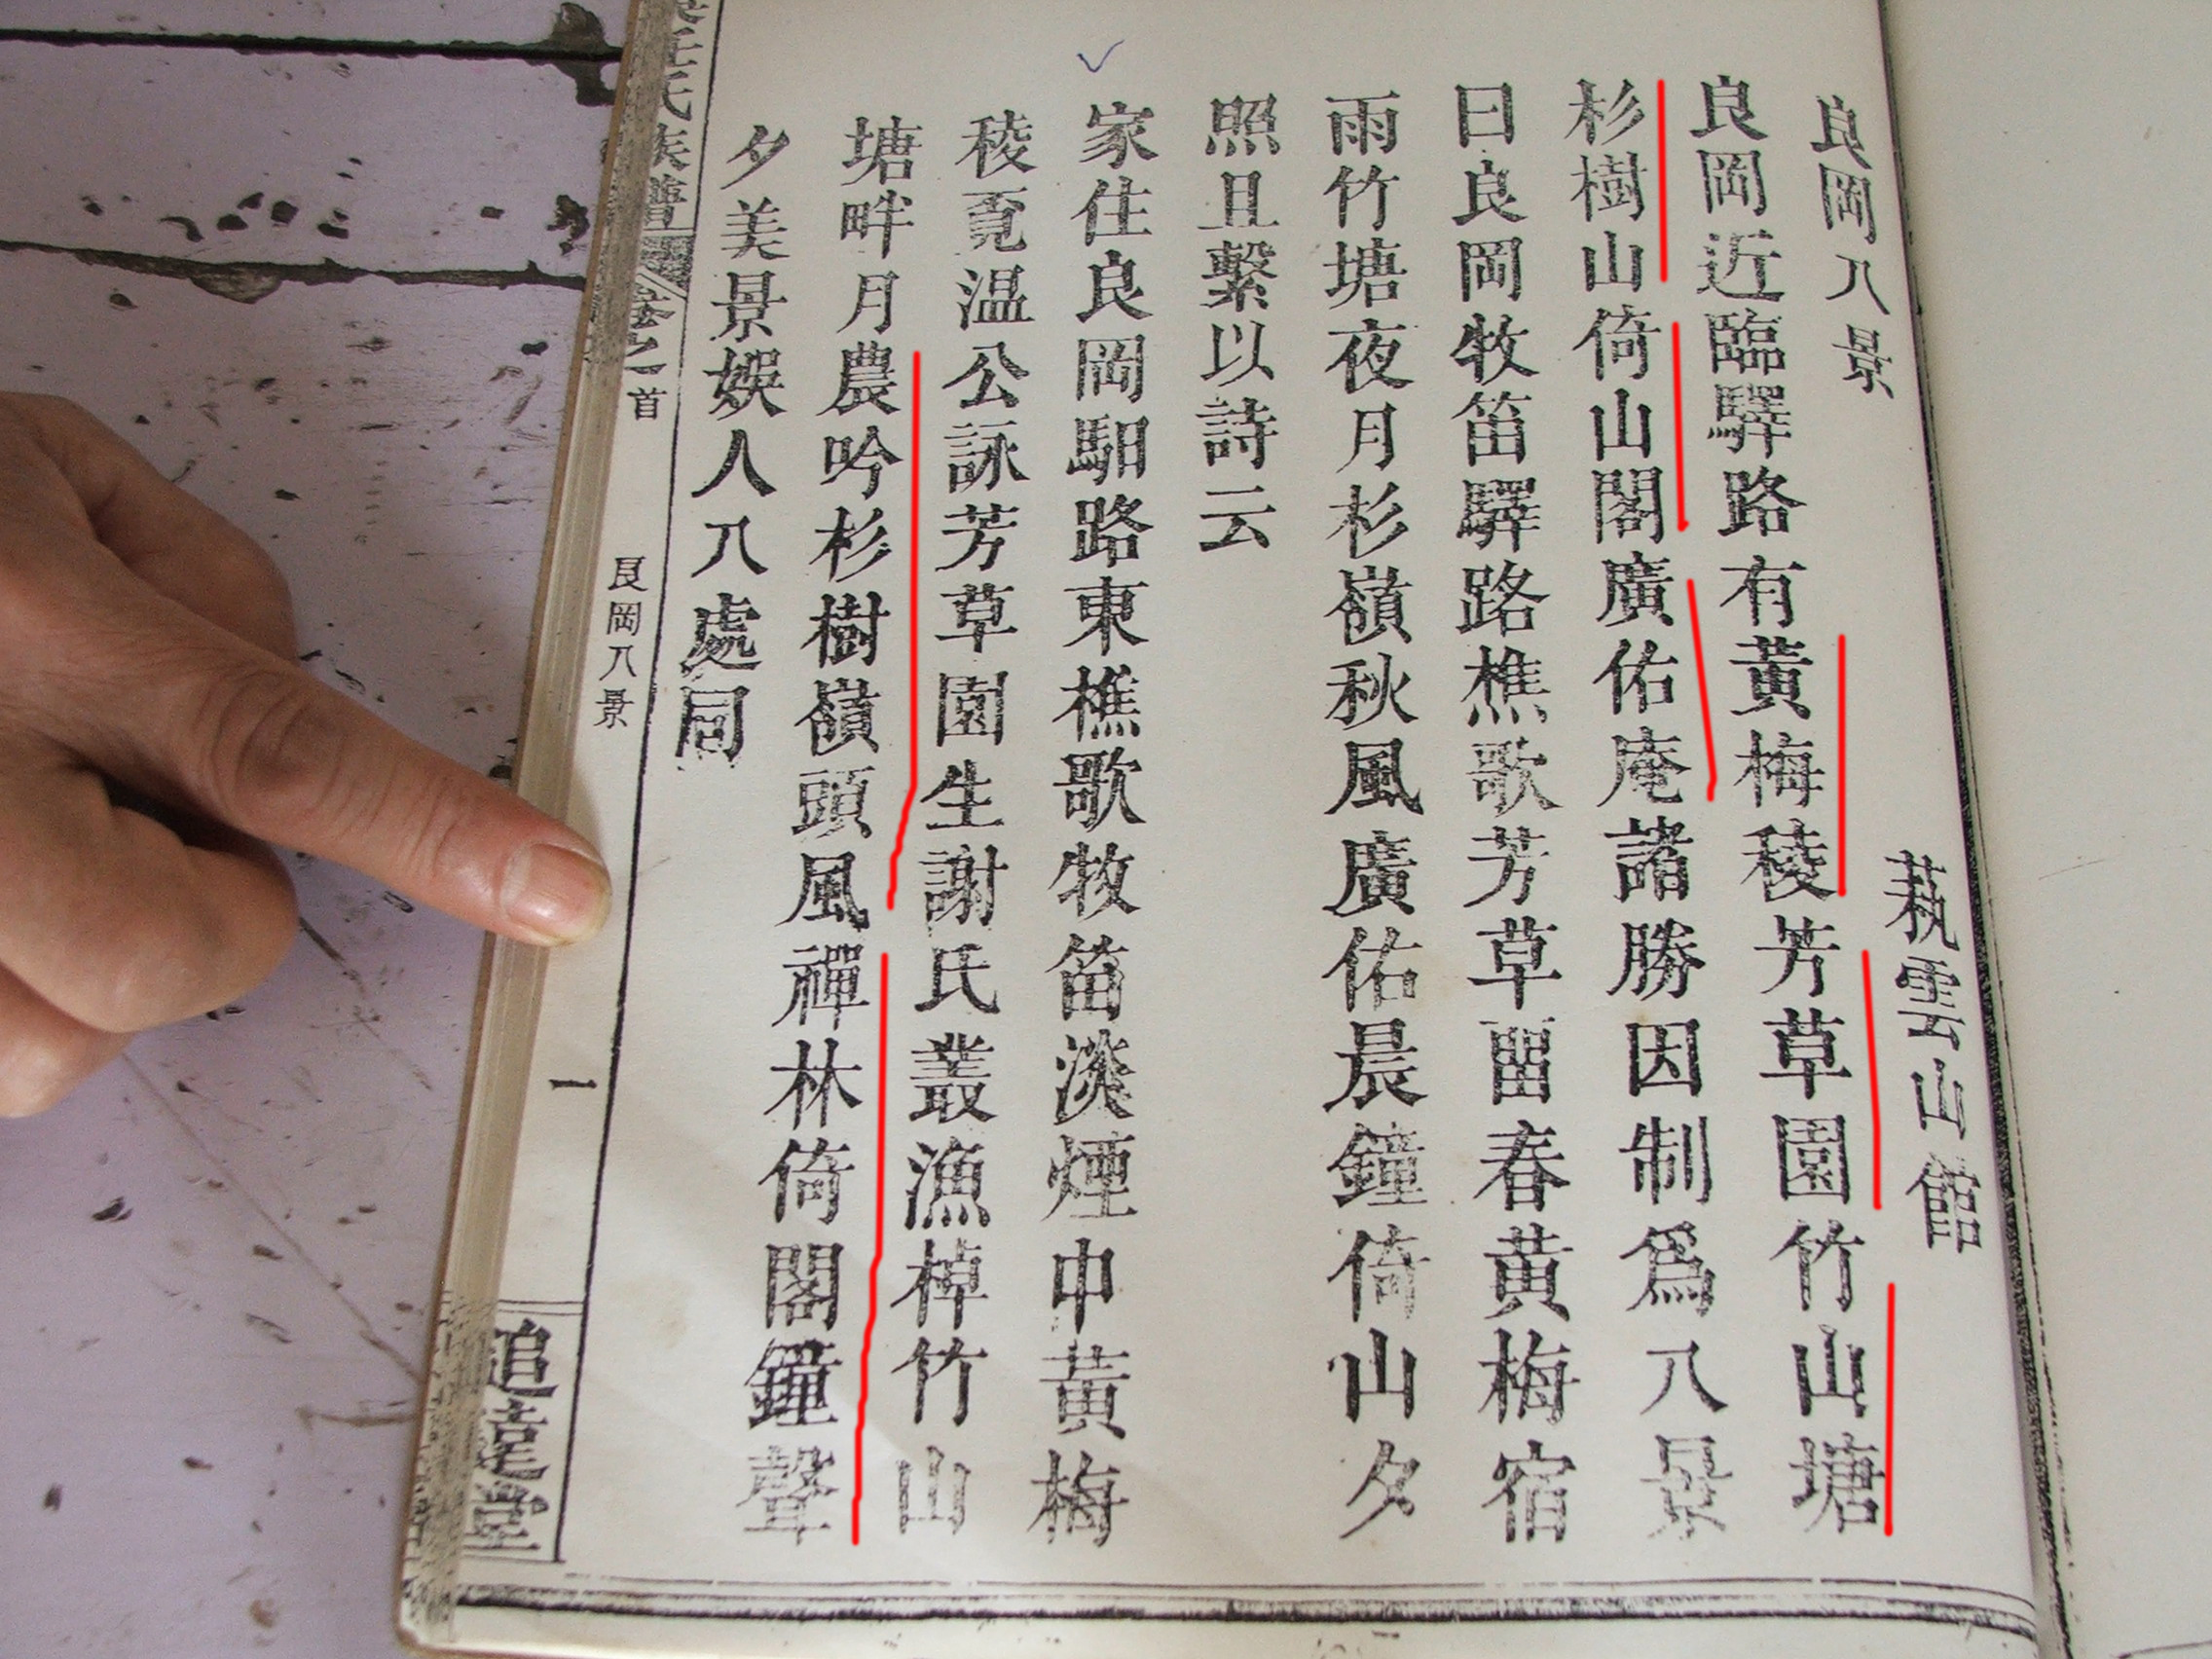 良岡八景
萟雲山館
良岡近臨驛路有黃梅稜芳草園竹山塘
杉樹山倚山閣廣佑庵諸勝因制爲八景
曰良岡牧笛驛路樵歌芳草留春黃梅宿
雨竹塘夜月杉嶺秋風廣佑晨鐘倚山夕
照且繫以詩云
家住良岡馹路東樵歌牧笛淡煙中黃梅
稜覓温公詠芳草園生謝氏叢漁棹竹山
塘畔月農吟杉樹嶺頭風禪林倚閣鐘聲
夕美景娛人八處同
氏族譜
卷之首
良岡八景
一
追遠堂